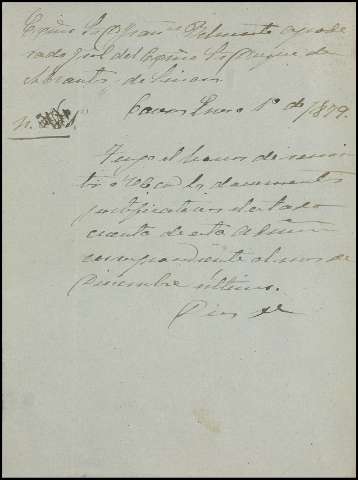 Excmo Sr Dn Franco Pelmonte apode
rado gral del Excmo Sr Duque de
Abrantes de Linares
Caceres Enero 1º de 1879.
N.
Tengo el honor de remi
tir a V. con los documentos
justificativos el estado
cuenta de esta Admon
correspondiente al mes de
Diciembre último.
Dios &